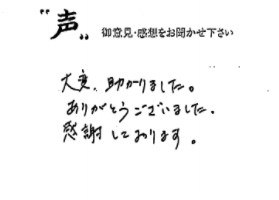 “声” 御意見・感想をお聞かせ下さい
大変、助かりました。
ありがとうございました。
感謝しております。